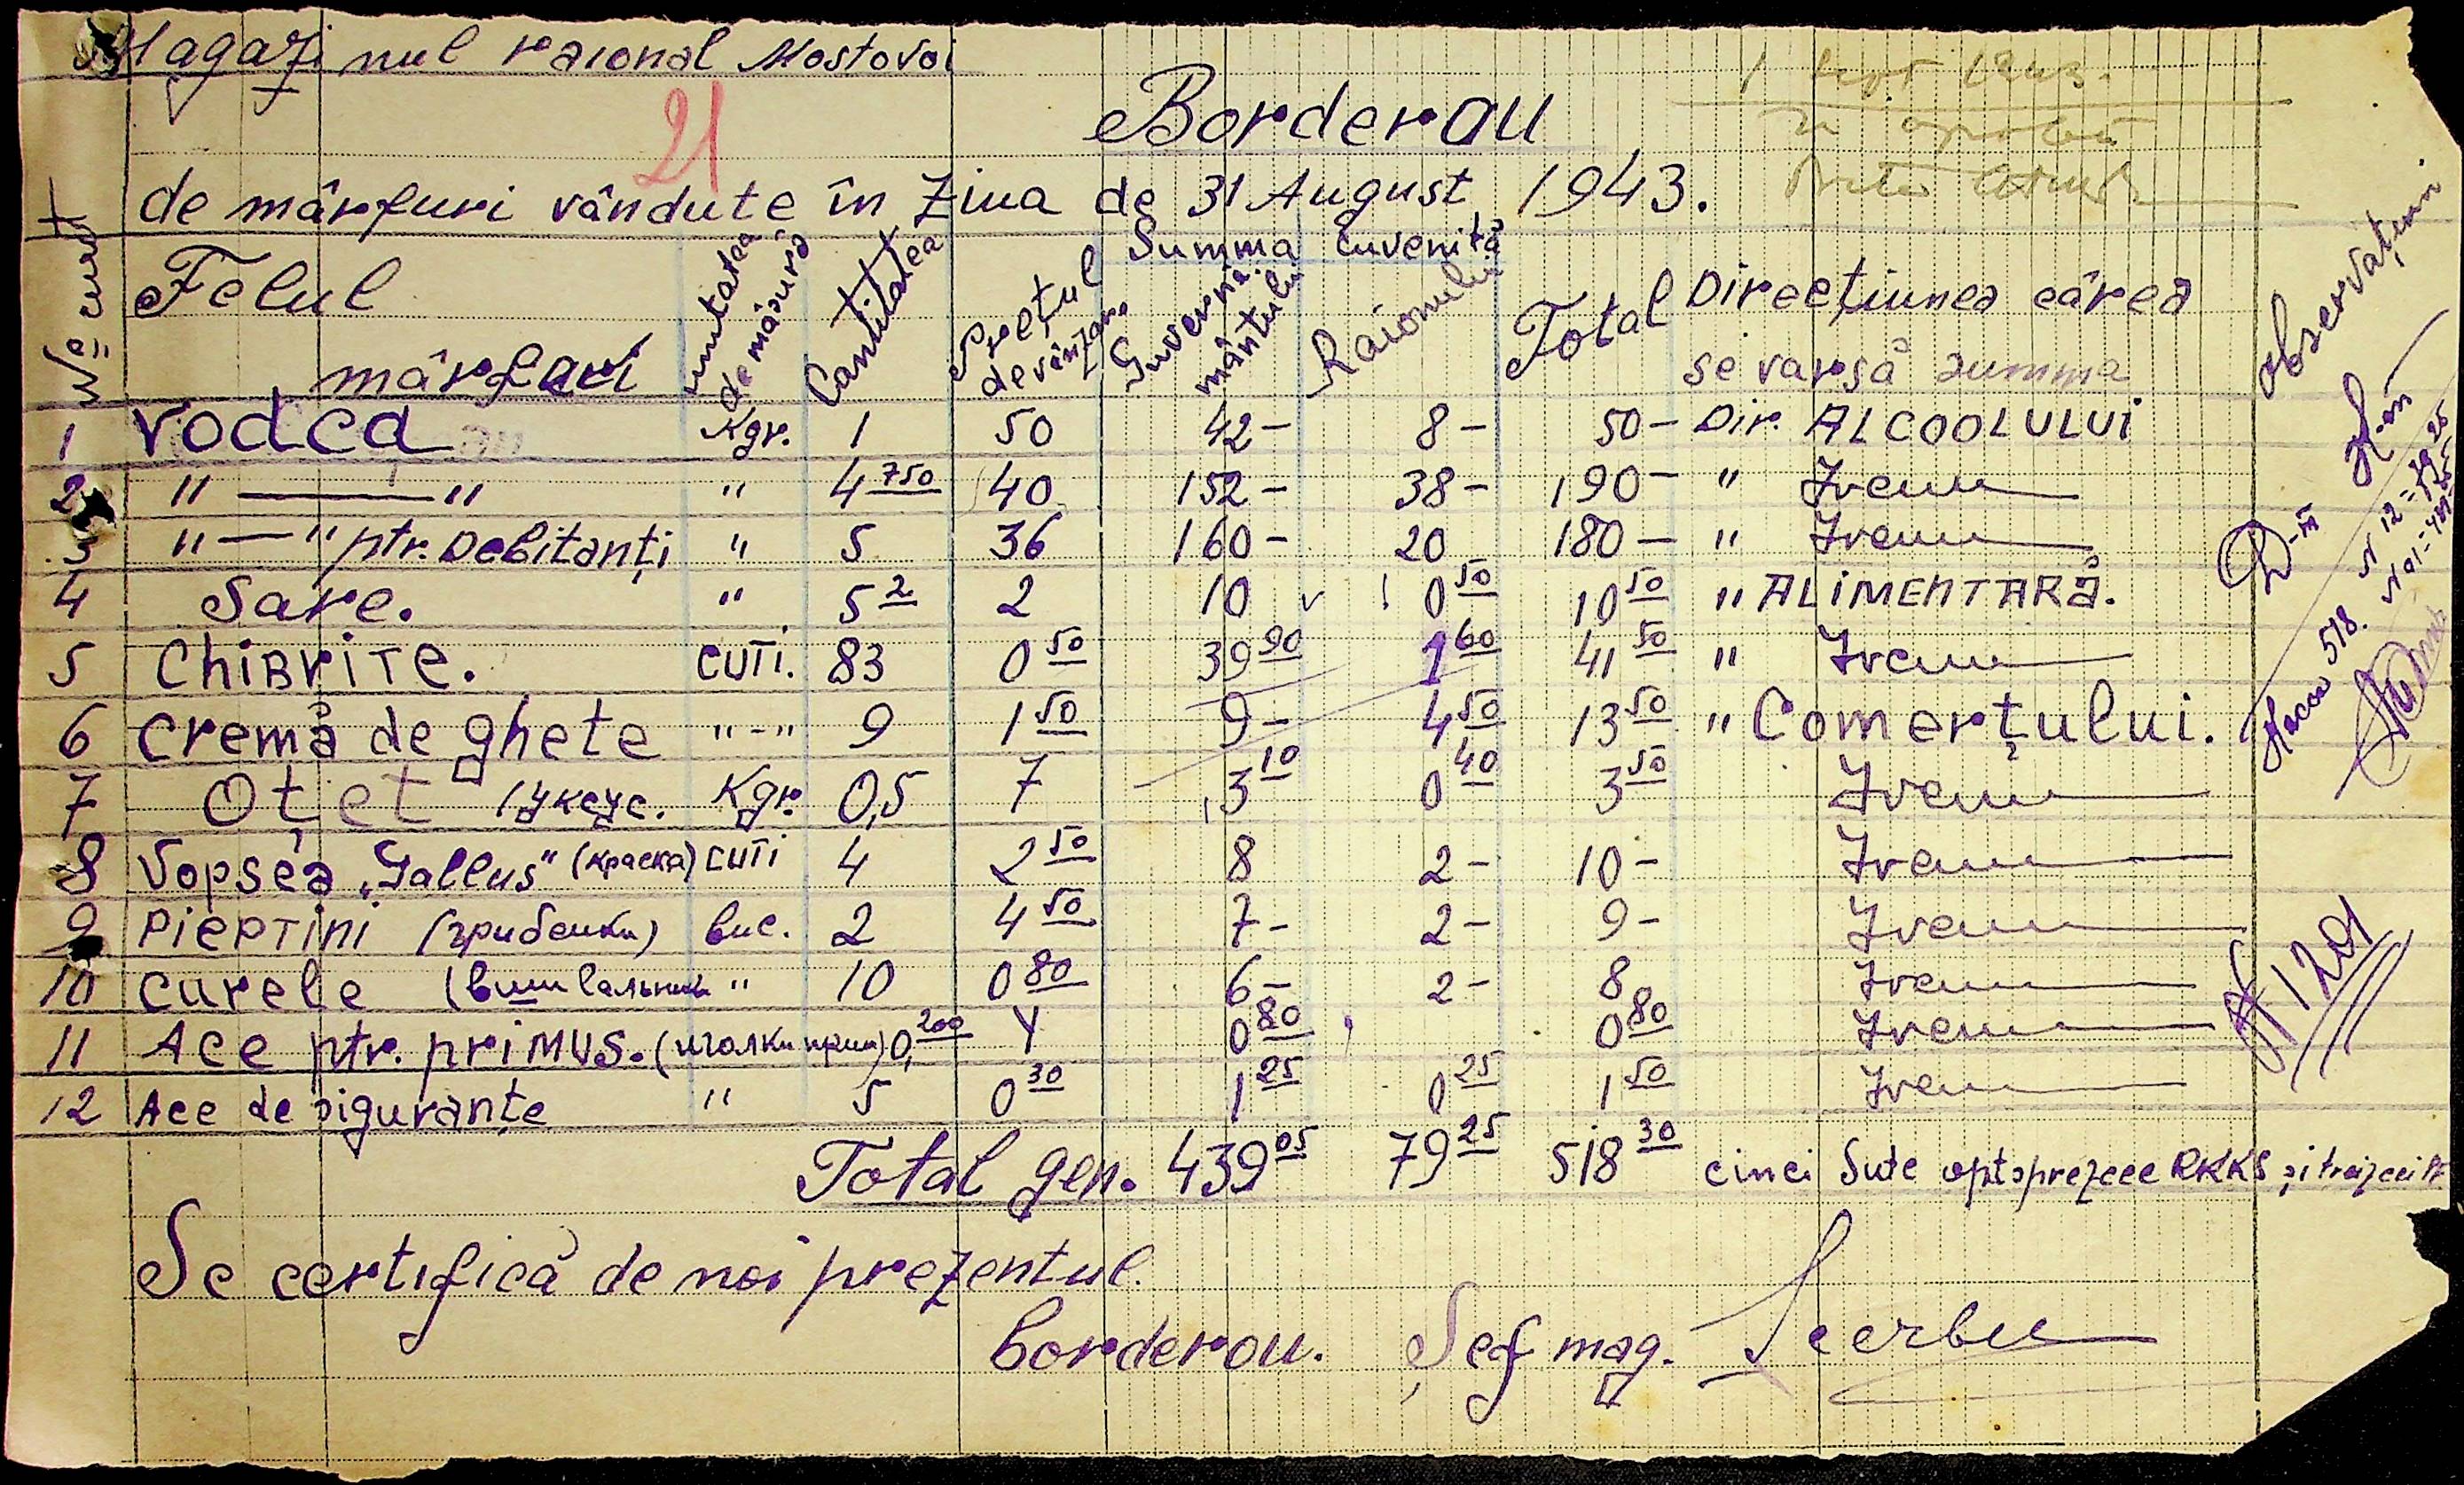 Magazinul raional Mostovoi
21
Borderou
de mârfuri vândute în ziua de 31 August 1943.
№ curent Felul mârfuri unitatea de mâsură Cantitatea Prețul de vînzare Summa cuvenită Guvernământului Raionului Total Direcțiunea cârea se varsă summa observațiuni
1 Vodca Kgr. 1 50 42- 8- 50- Dir. ALCOOLULUI
2 "—" " 4 750 40 152- 38- 190- " Idem
3 "—" ptr. Debitanți " 5 36 160- 20 180- " Idem
4 Sare. " 5 2 2 10 0 50 10 50 " ALIMENTARĂ.
5 ChiBriTe. CUTI. 83 0 50 39 90 1 60 41 50 " Idem
6 Cremă de ghete "-" 9 1 50 9- 4 50 13 50 " Comerțului.
7 Oțet (уксус. Kgr. 0,5 7 3 10 0 40 3 50 Idem
8 Vopsea „Gallus" (краска) CUTI 4 2 50 8 2- 10- Idem
9 PiepTini (грибенки) buc. 2 4 50 7- 2- 9- Idem
10 Curele " 10 0 80 6- 2- 8 Idem
11 Ace ptr. priMUS. (иголки прим) 0,200 4 0 80 0 80 Idem
12 Ace de siguranțe " 5 0 30 1 25 0 25 1 50 Idem
Total gen. 439 05 79 25 518 30 cinci Sute optsprezece RKKS și treizeci
№ 1201
Se certifică de noi prezentul
borderou. Șef mag.